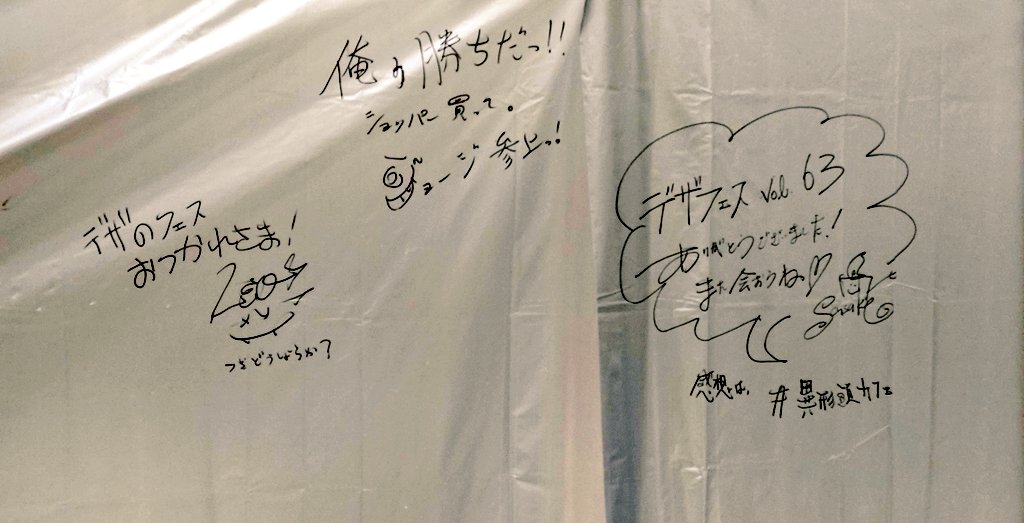 俺の勝ちだっ!!
ショッパー買って。
ョージ参上っ!
デザのフェス
おつかれさま!
つぎどうしようか?
デザフェス vol. 63
ありがとうございました!
また会おうね♡
感想は、#異形頭カフェ